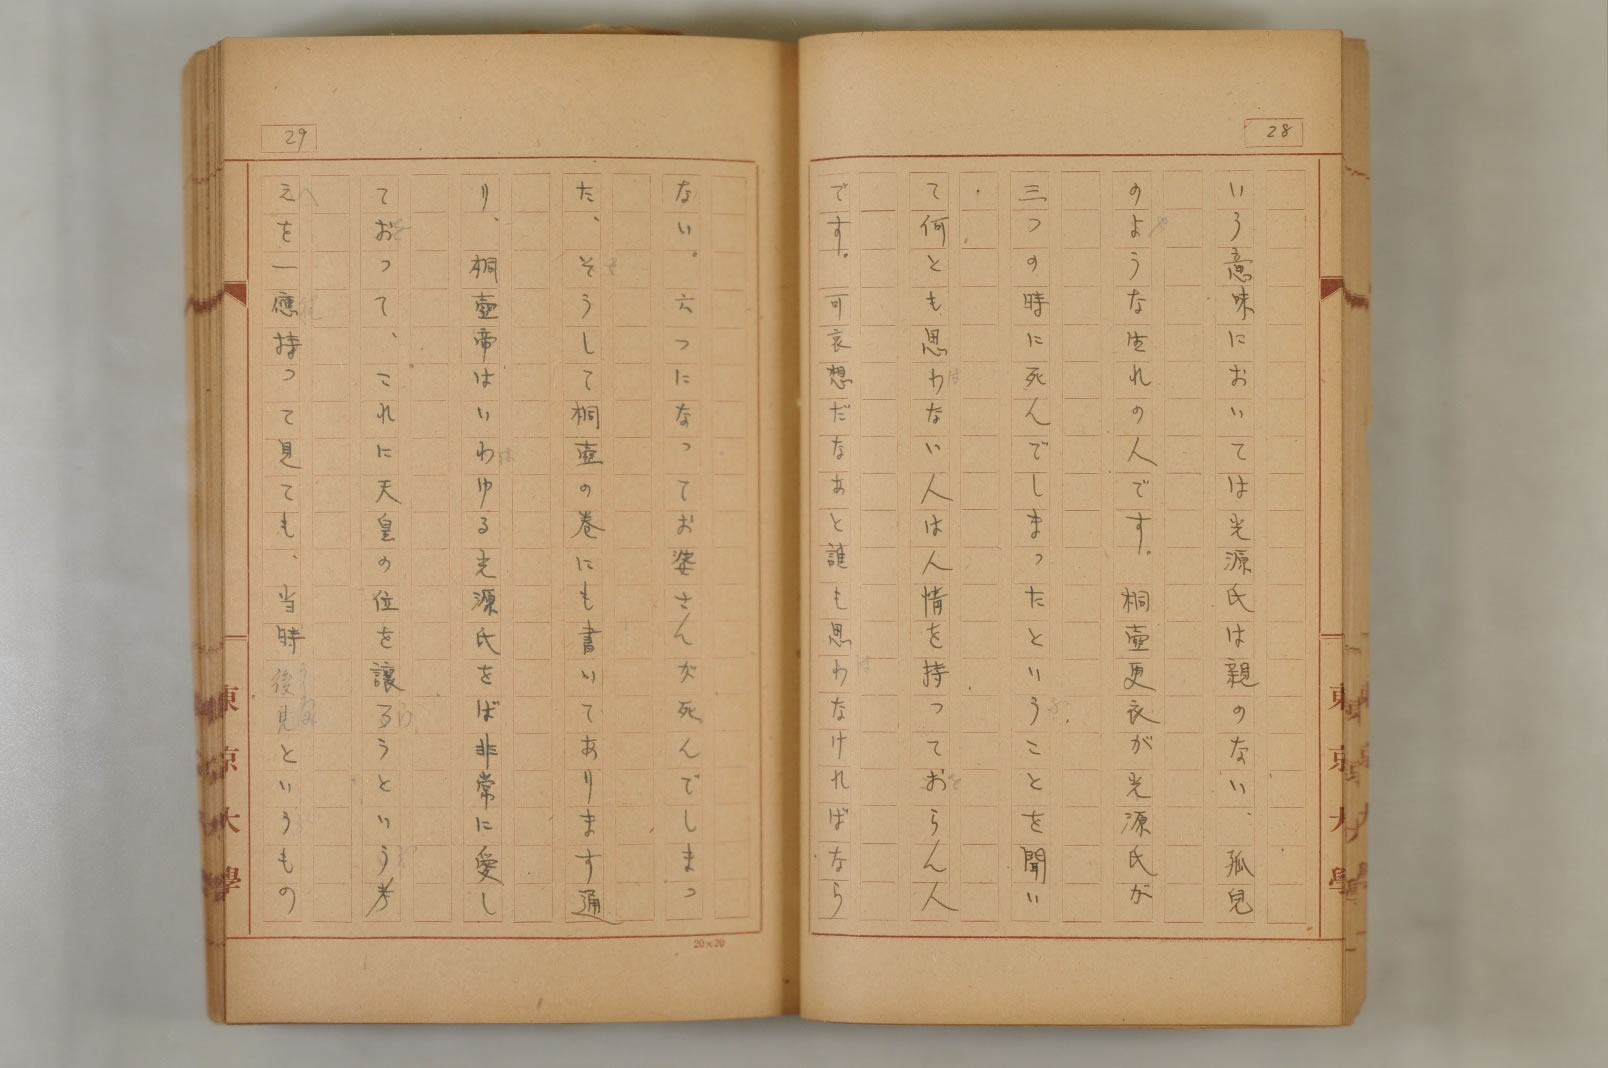 28
いう意味においては光源氏は親のない、孤兒
のような生れの人です。桐壷更衣が光源氏が
三つの時に死んでしまったということを聞い
て何とも思わない人は人情を持っておらん人
です。可哀想だなあと誰も思わなければなら
東京大學
29
ない。六つになってお婆さんが死んでしまっ
た、そうして桐壷の巻にも書いてあります通
り、桐壷帝はいわゆる光源氏をば非常に愛し
ておって、これに天皇の位を譲ろうという考
えを一應持って見ても、当時後見というもの
東京大學
20×20